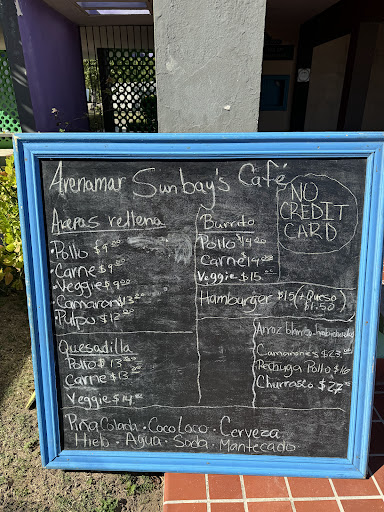 Arenamar Sunbay's Café
NO
CREDIT
CARD
Arepas rellena
·Pollo $9.00
·Carne $9.00
·Veggie $9.00
·Camaron $13.00
·Pulpo $12.00
Quesadilla
Pollo $13.00
Carne $13.00
Veggie $14.00
Burrito
Pollo $14.00
Carne $14.00
Veggie $15.00
Hamburger $15 (+Queso
$1.50)
Arroz blanco-habichuelas
Camarones $23.00
Pechuga Pollo $16
Churrasco $27.00
Piña Colada · Coco Loco · Cerveza
Hielo · Agua · Soda · Mantecado